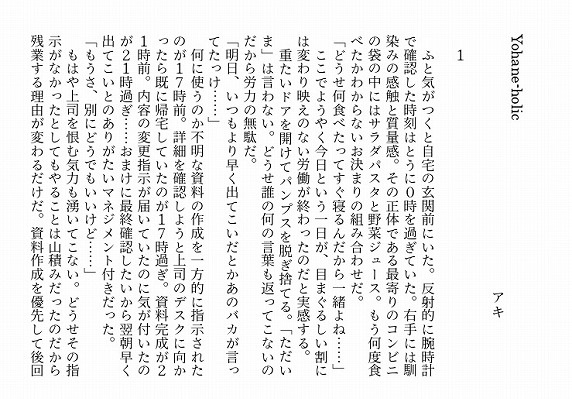 Yohane-holic
アキ
1
　ふと気がつくと自宅の玄関前にいた。反射的に腕時計
で確認した時刻はとうに0時を過ぎていた。右手には馴
染みの感触と質量感。その正体である最寄りのコンビニ
の袋の中にはサラダパスタと野菜ジュース。もう何度食
べたかわからないお決まりの組み合わせだ。
「どうせ何食べたってすぐ寝るんだから一緒よね……」
　ここでようやく今日という一日が、目まぐるしい割に
は変わり映えのない労働が終わったのだと実感する。
　重たいドアを開けてパンプスを脱ぎ捨てる。「ただい
ま」は言わない。どうせ誰の何の言葉も返ってこないの
だから労力の無駄だ。
「明日、いつもより早く出てこいだとかあのバカが言っ
てたっけ……」
　何に使うのか不明な資料の作成を一方的に指示された
のが17時前。詳細を確認しようと上司のデスクに向か
ったら既に帰宅していたのが17時過ぎ。資料完成が2
1時前。内容の変更指示が届いていたのに気が付いたの
が21時過ぎ……おまけに最終確認したいから翌朝早く
出てこいとのありがたいマネジメント付きだった。
「もうさ、別にどうでもいいけど……」
　もはや上司を恨む気力も湧いてこない。どうせその指
示がなかったとしてもやることは山積みだったのだから
残業する理由が変わるだけだ。資料作成を優先して後回